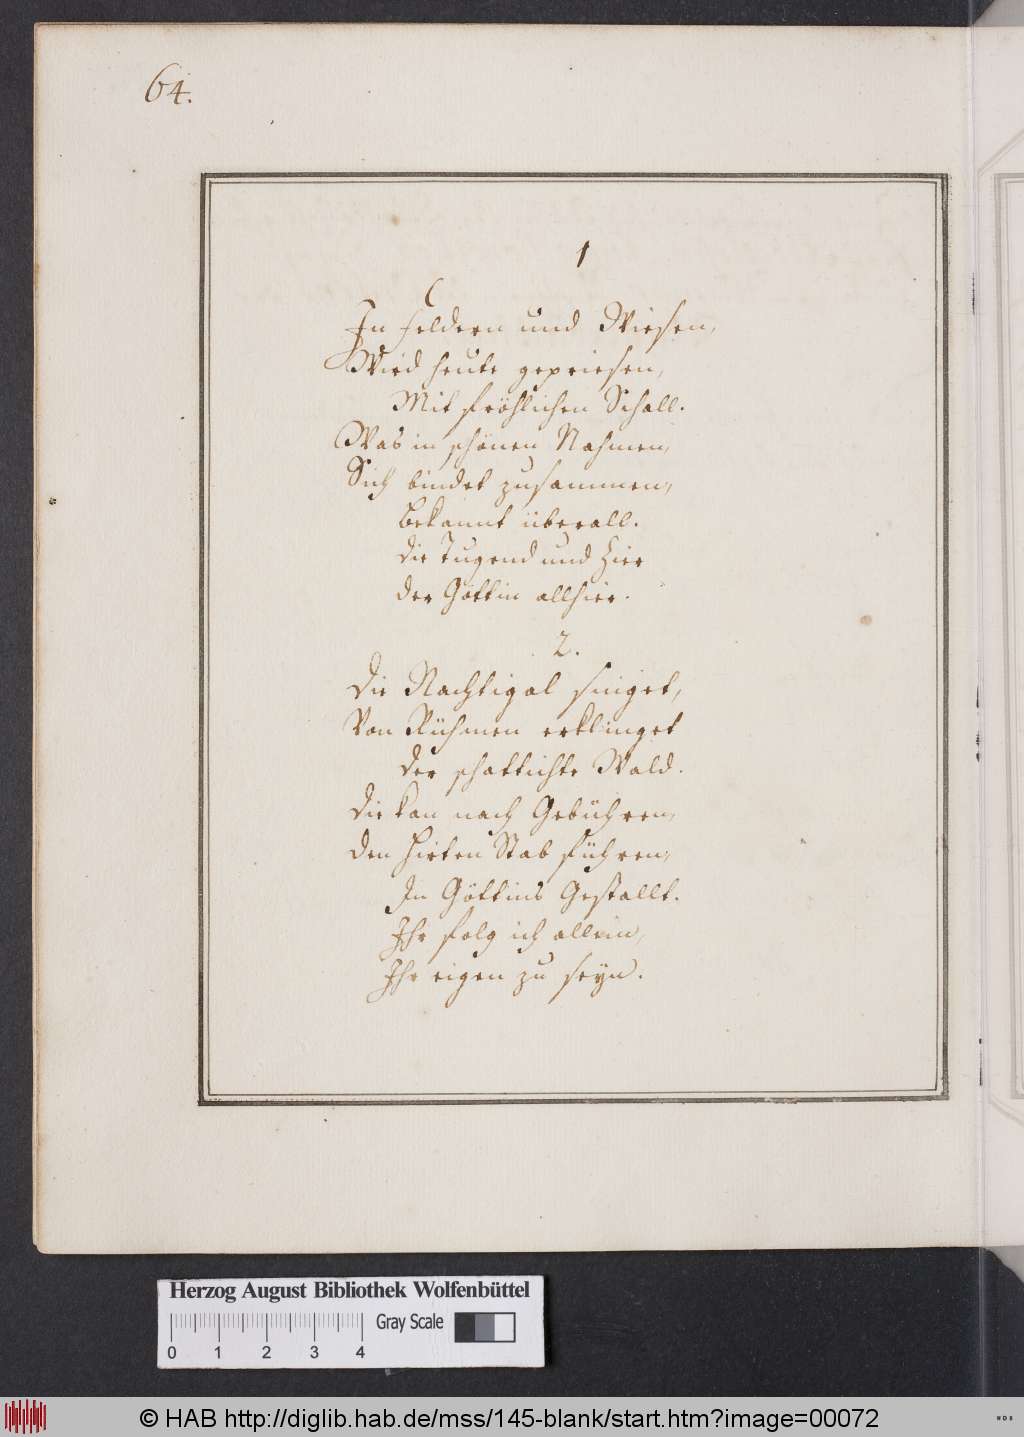 64.
1
In Feldern und Wiesen,
Wird heute gepriesen,
Mit fröhlichen Schall.
Was in schönen Nahmen,
Sich bindet zusammen,
bekannt überall.
die Tugend und Zier
der Göttin allhier.
2.
die Nachtigal singet,
Von Rühmen erklinget
der schattichte Wald.
die kan nach Gebühren,
den Hirten Stab führen,
In Göttins Gestallt.
Ihr folg ich allein,
Ihr eigen zu seyn.
Herzog August Bibliothek Wolfenbüttel
Gray Scale
0 1 2 3 4
© HAB http://diglib.hab.de/mss/145-blank/start.htm?image=00072